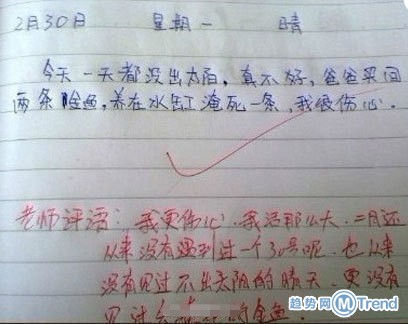 2月30日 星期一 晴
今天一天都没出太阳,真不好,爸爸买回
两条金鱼,养在水缸淹死一条,我很伤心。
老师评语:我更伤心.我活那么大.二月还
从来没有遇到过一个30号呢.也从来
没有见过不出太阳的晴天.更没有
见过会 死的金鱼.
趋势网 M Trend